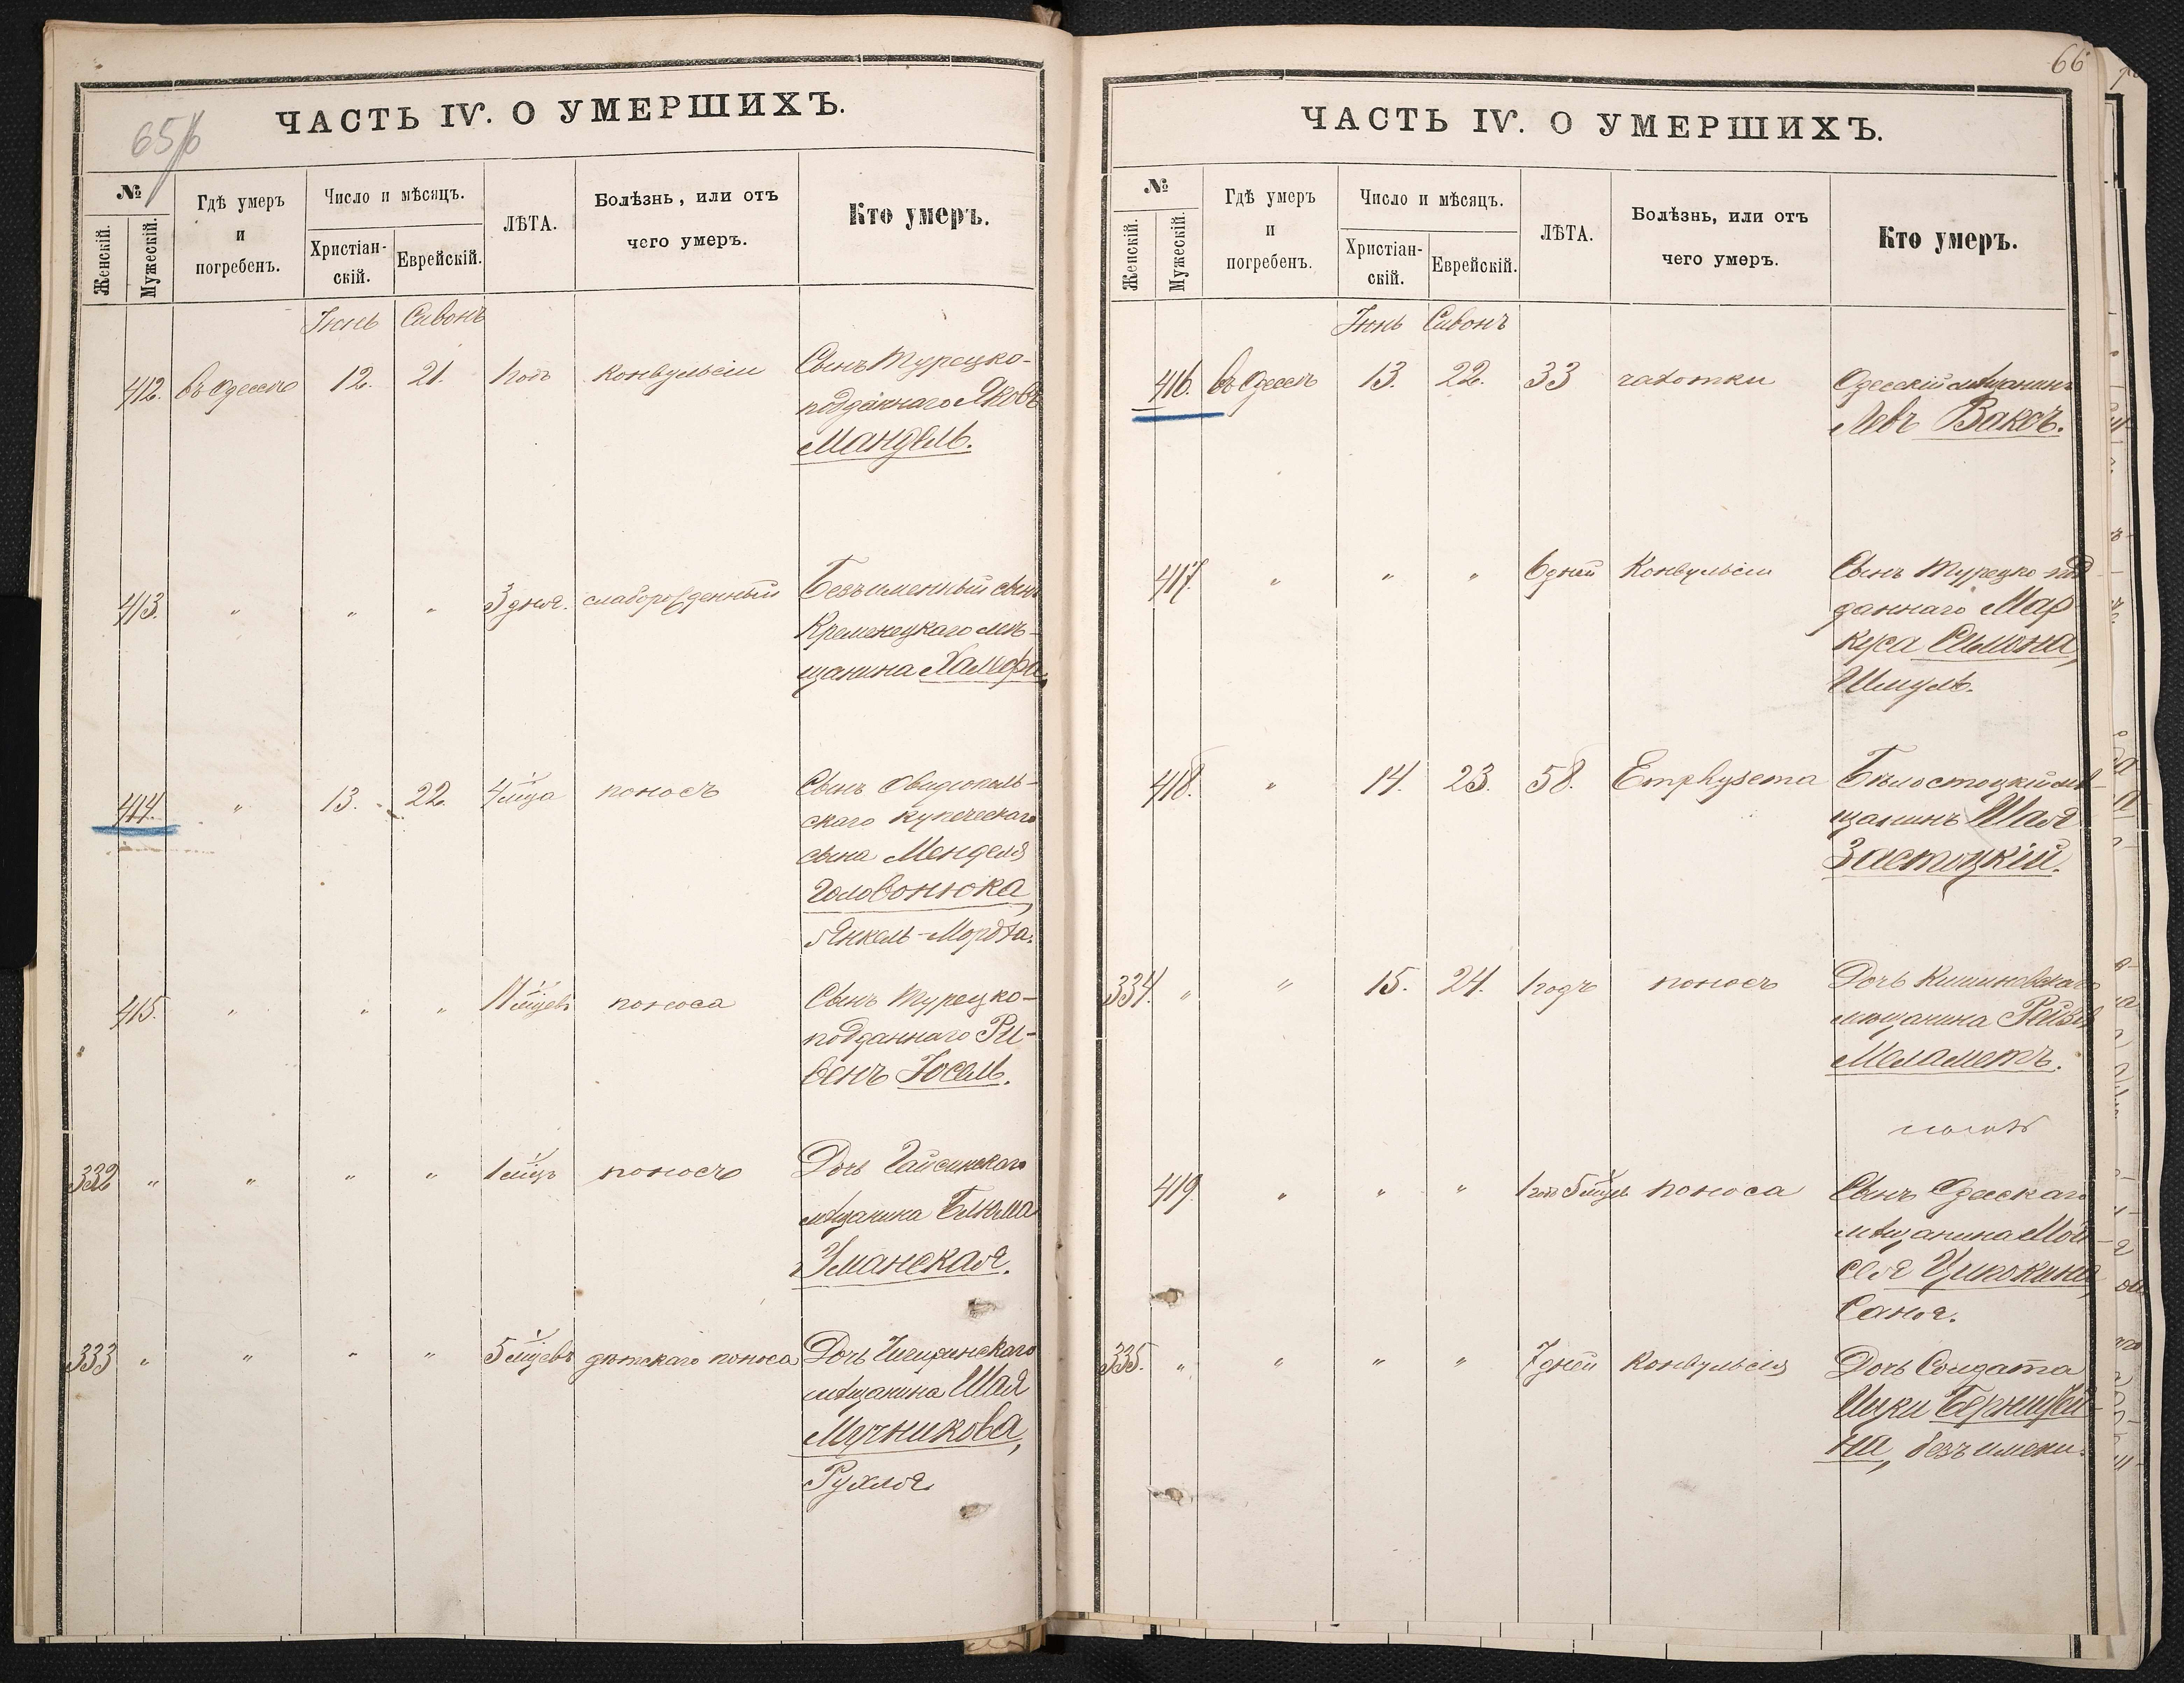 65 об
ЧАСТЬ IV. О УМЕРШИХЪ.
№
Женскій.
Мужескій.
Гдѣ умеръ
и
погребенъ.
Число и мѣсяцъ.
Христіан-
скій.
Еврейскій.
ЛѢТА.
Болѣзнь, или отъ
чего умеръ.
Кто умеръ.
Іюнь Сивонъ
412. въ Одессѣ 12. 21. 1 годъ конвульсіи Сынъ Турецко-
подданнаго Яковъ
Мандель.
413. " " " 3 дня. слаборожденный Безъименный сынъ
Кременецкаго мѣ-
щанина
414. " 13. 22. 4 мца поносъ Сынъ Овидіополь-
скаго купеческаго
сына Менделя
Головонюка,
Янкель-Мордха.
415. " " " 11 мцевъ поноса Сынъ Турецко-
подданнаго Ри-
венъ Іосель.
332 " " " " 1 мцъ поносъ Дочь Гайсинскаго
мѣщанина Блюма
Уманская.
333 " " " " 5 мцевъ дѣтскаго поноса Дочь Чигиринскаго
мѣщанина Шая
Мучникова,
Рухля.
66
ЧАСТЬ IV. О УМЕРШИХЪ.
№
Женскій.
Мужескій.
Гдѣ умеръ
и
погребенъ.
Число и мѣсяцъ.
Христіан-
скій.
Еврейскій.
ЛѢТА.
Болѣзнь, или отъ
чего умеръ.
Кто умеръ.
Іюнь Сивонъ
416. въ Одессѣ 13. 22. 33 чахотки Одесскій мѣщанинъ
Левъ Ваксъ.
417. " " " 6 дней Конвульсіи Сынъ Турецко-под
даннаго Мар
куса Симона,
Шмуль.
418. " 14. 23. 58. Emphysema Бѣлостоцкій мѣ-
щанинъ Шая
Застоцкій.
334. " " 15. 24. 1 годъ поносъ Дочь Кишиневскаго
мѣщанина Рейзя
Меламетъ.
419. " " " 1 годъ 5 мцевъ поноса Сынъ Одесскаго
мѣщанина Мой-
сея
Саня.
335. " " " " 7 дней Конвульсія Дочь Солдата
Ицки Бернштей-
на, безъ имени.